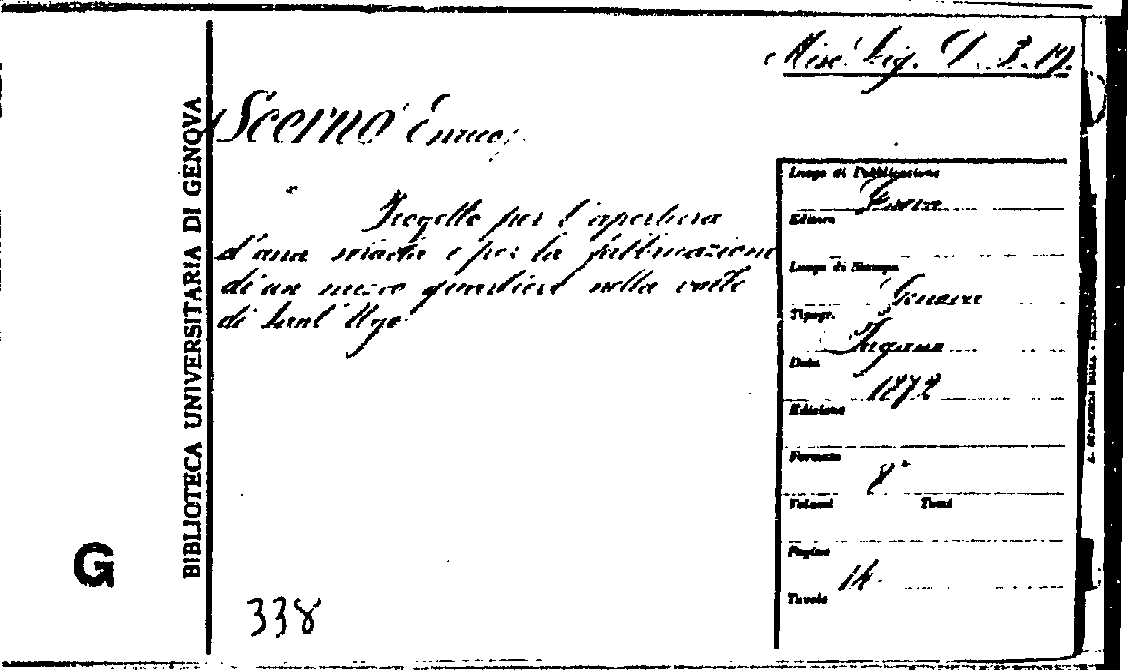 Misc. Lig. D. 3. 19.
Scerno Enrico;
Progetto per l'apertura
d'una strada e per la fabbricazione
di un nuovo quartiere nella valle
di Sant'Ugo
BIBLIOTECA UNIVERSITARIA DI GENOVA
G
338
Luogo di Pubblicazione
Genova
Editore
Luogo di Stampa
Genova
Tipogr.
Data
1872
Edizione
Formato
8°
Volumi Tomi
Pagine
14
Tavole